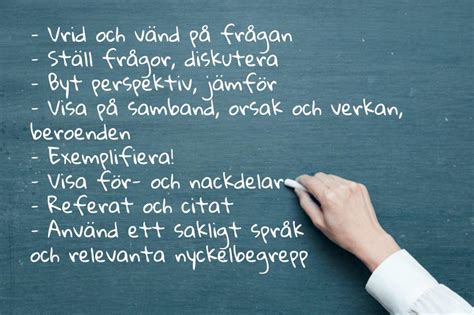 - Vrid och vänd på frågan
- Ställ frågor, diskutera
- Byt perspektiv, jämför
- Visa på samband, orsak och verkan,
beroenden
- Exemplifiera!
- Visa för- och nackdelar
- Referat och citat
- Använd ett sakligt språk
och relevanta nyckelbegrepp